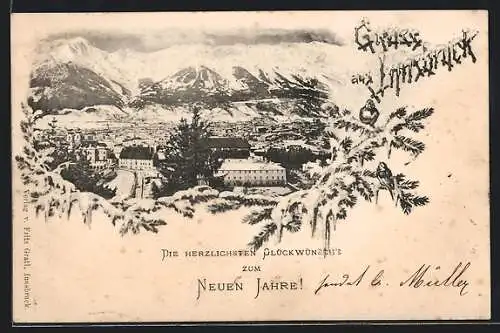 Gruss
aus Innsbruck
DIE HERZLICHSTEN GLÜCKWÜNSCH'E
ZUM
NEUEN JAHRE!
sendet
Müller
Verlag v. Fritz Gratl, Innsbruck.